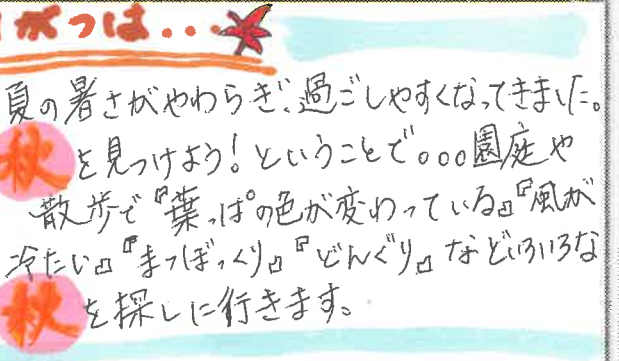 がつは...
夏の暑さがやわらぎ、過ごしやすくなってきました。
秋を見つけよう!ということで。。。園庭や
散歩で『葉っぱの色が変わっている』『風が
冷たい』『まつぼっくり』『どんぐり』などいろいろな
秋を探しに行きます。